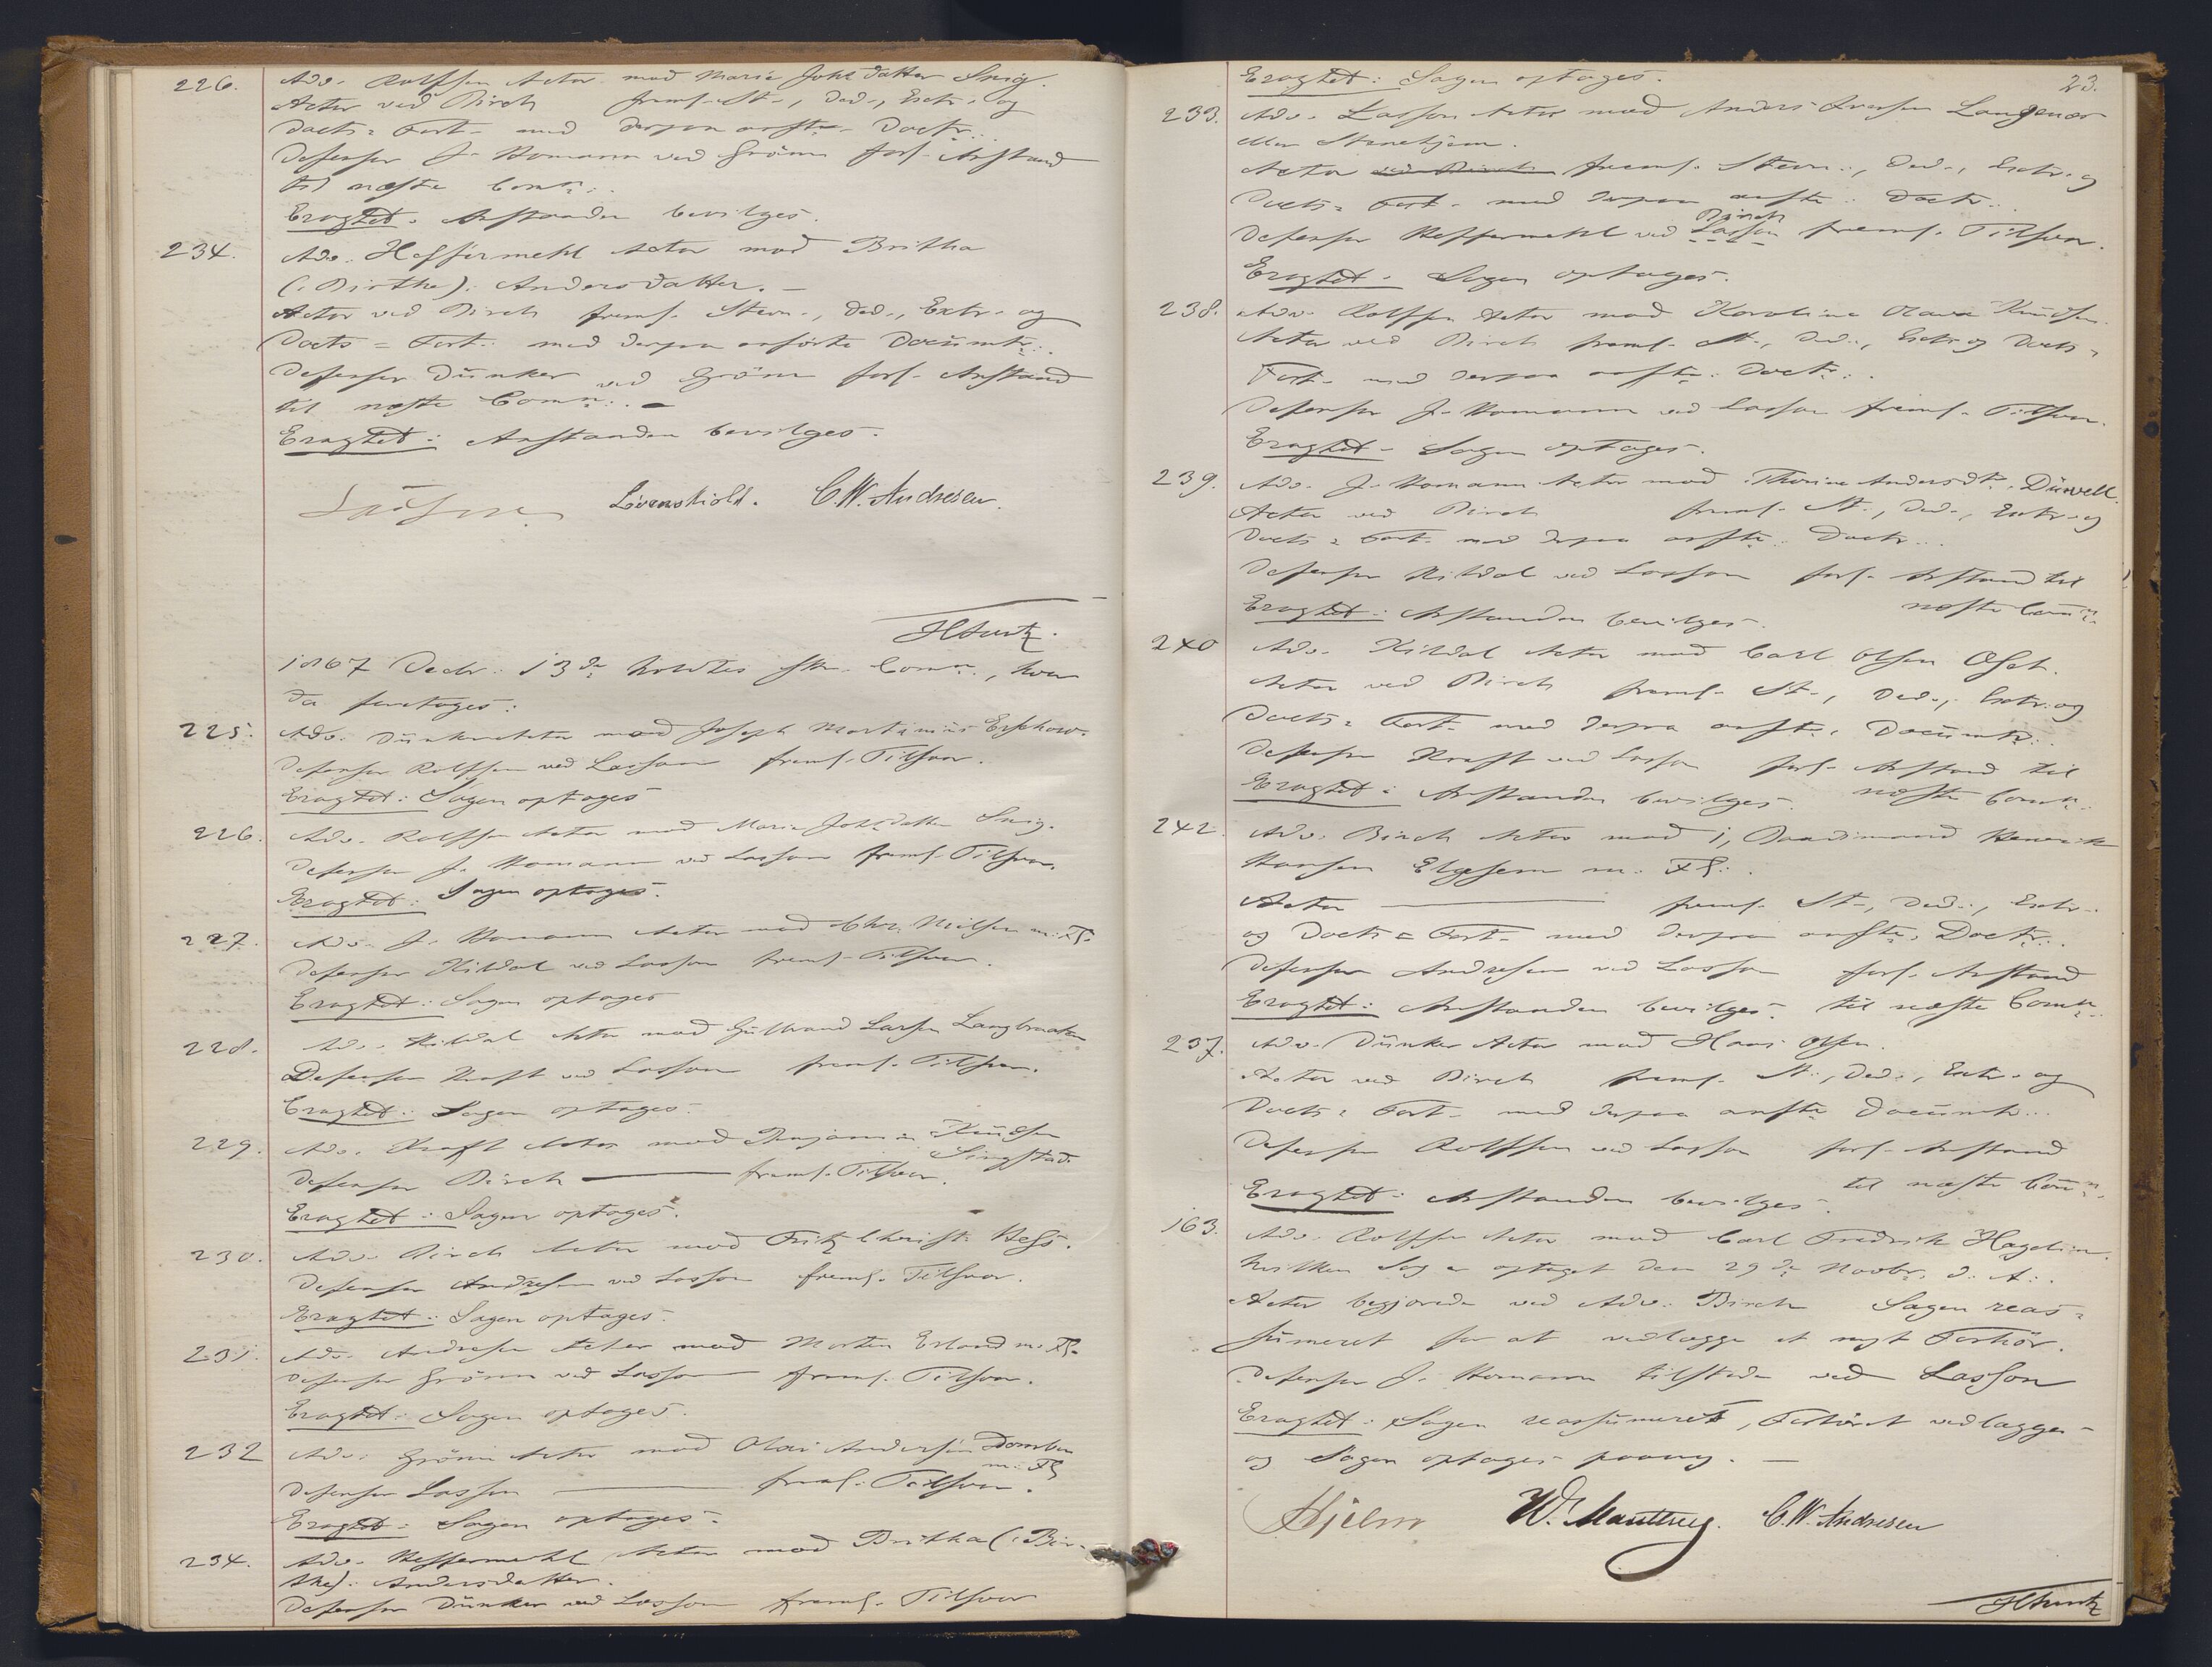 226. Adv. Rolffsen Actor mod Maria Johsdatter Snig.
Actor ved Birch freml. St., Ded., Extr. og
Docts = Fort. med derpaa anfte. Doctr.
Defensor J. Homann ved Grönn forl. Anstand
til næste Comn.
Eragtet: Anstanden bevilges.
234. Adv. Heffermehl Actor mod Britha
(: Birthe): Andersdatter. –
Actor ved Birch freml. Stevn., Ded., Extr. og
Docts = Fort. med derpaa anförte Documtr.
Defensor Dunker ved Grönn forl. Anstand
til næste Comn. –
Eragtet: Anstanden bevilges.
Lövenskiold. C.W. Andresen.
1867 Decbr. 13de holdtes Comn., hvor
da foretoges:
225. Adv. Dunker Actor mod Joseph Martinius
Defensor Rolffsen ved Lasson freml. Tilsvar.
Eragtet: Sagen optages
226. Adv. Rolffsen Actor mod Maria Johsdatter Snig.
Defensor J. Homann ved Lasson freml. Tilsvar.
Eragtet: Sagen optages.
227. Adv. J. Homann Actor mod Chr. Nielsen m. Fl.
Defensor Kildal ved Lasson freml. Tilsvar.
Eragtet: Sagen optages
228. Adv. Kildal Actor mod Gulbrand Larsen Langbraaten
Defensor Kraft ved Lasson freml. Tilsvar.
Eragtet: Sagen optages.
229. Adv. Kraft Actor mod Benjamin Knudsen
Singstad.
Defensor Birch — freml. Tilsvar.
Eragtet: Sagen optages.
230. Adv. Birch Actor mod Fritz Christ. Hess.
Defensor Andresen ved Lasson freml. Tilsvar.
Eragtet: Sagen optages.
231. Adv. Andresen Actor mod Morten Erland m. Fl.
Defensor Grönn ved Lasson freml. Tilsvar.
Eragtet: Sagen optages.
232 Adv. Grönn Actor mod Olai Andersen
m. Fl
Defensor Lasson — freml. Tilsvar.
Eragtet: Sagen optages.
234. Adv. Heffermehl Actor mod Britha (: Bir-
the): Andersdatter.
Defensor Dunker ved Lasson freml. Tilsvar
23.
Eragtet: Sagen optages.
233. Adv. Lasson Actor mod Anders Iversen
eller
Actor ved Birch freml. Stevn., Ded., Extr. og
Docts = Fort. med derpaa anfte. Doctr.
Birch
Defensor Heffermehl ved Lasson freml. Tilsvar.
Eragtet: Sagen optages.
238. Adv. Rolffsen Actor mod Karoline Olava Knudsen.
Actor ved Birch freml. St., Ded., Extr. og Docts =
Fort. med derpaa anfte. Doctr.
Defensor J. Homann ved Lasson freml. Tilsvar.
Eragtet: Sagen optages.
239. Adv. J. Homann Actor mod Thorine Andersdtr.
Actor ved Birch freml. St., Ded., Extr. og
Docts = Fort. med derpaa anfte. Doctr.
Defensor Kildal ved Lasson forl. Anstand til
næste Comn.
Eragtet: Anstanden bevilges.
240 Adv. Kildal Actor mod Carl Olsen
Actor ved Birch freml. St., Ded., Extr. og
Docts = Fort. med derpaa anfte. Documtr.
Defensor Kraft ved Lasson forl. Anstand til
næste Comn.
Eragtet: Anstanden bevilges.
242. Adv. Birch Actor mod 1, Henrik
Hansen Elgesem m. Fl.
Actor — freml. St., Ded., Extr.
og Docts = Fort. med derpaa anfte. Doctr.
Defensor Andresen ved Lasson forl. Anstand
Eragtet: Anstanden bevilges. til næste Comn.
237. Adv. Dunker Actor mod Hans Olsen.
Actor ved Birch freml. St., Ded., Extr. og
Docts = Fort. med derpaa anfte Documtr.
Defensor Rolffsen ved Lasson forl. Anstand
til næste Comn.
Eragtet: Anstanden bevilges.
163. Adv. Rolffsen Actor mod Carl Fredrik Hagelin.
hvilken Sag er optaget den 29de Novbr. d. A.
Actor begjærede ved Adv. Birch Sagen reas =
sumeret for at vedlægge et nyt Forhör.
Defensor J. Homann tilstede ved Lasson
Eragtet: Sagen reassumeret, Forhöret vedlægges
og Sagen optages paany. –
Hjelm C.W. Andresen